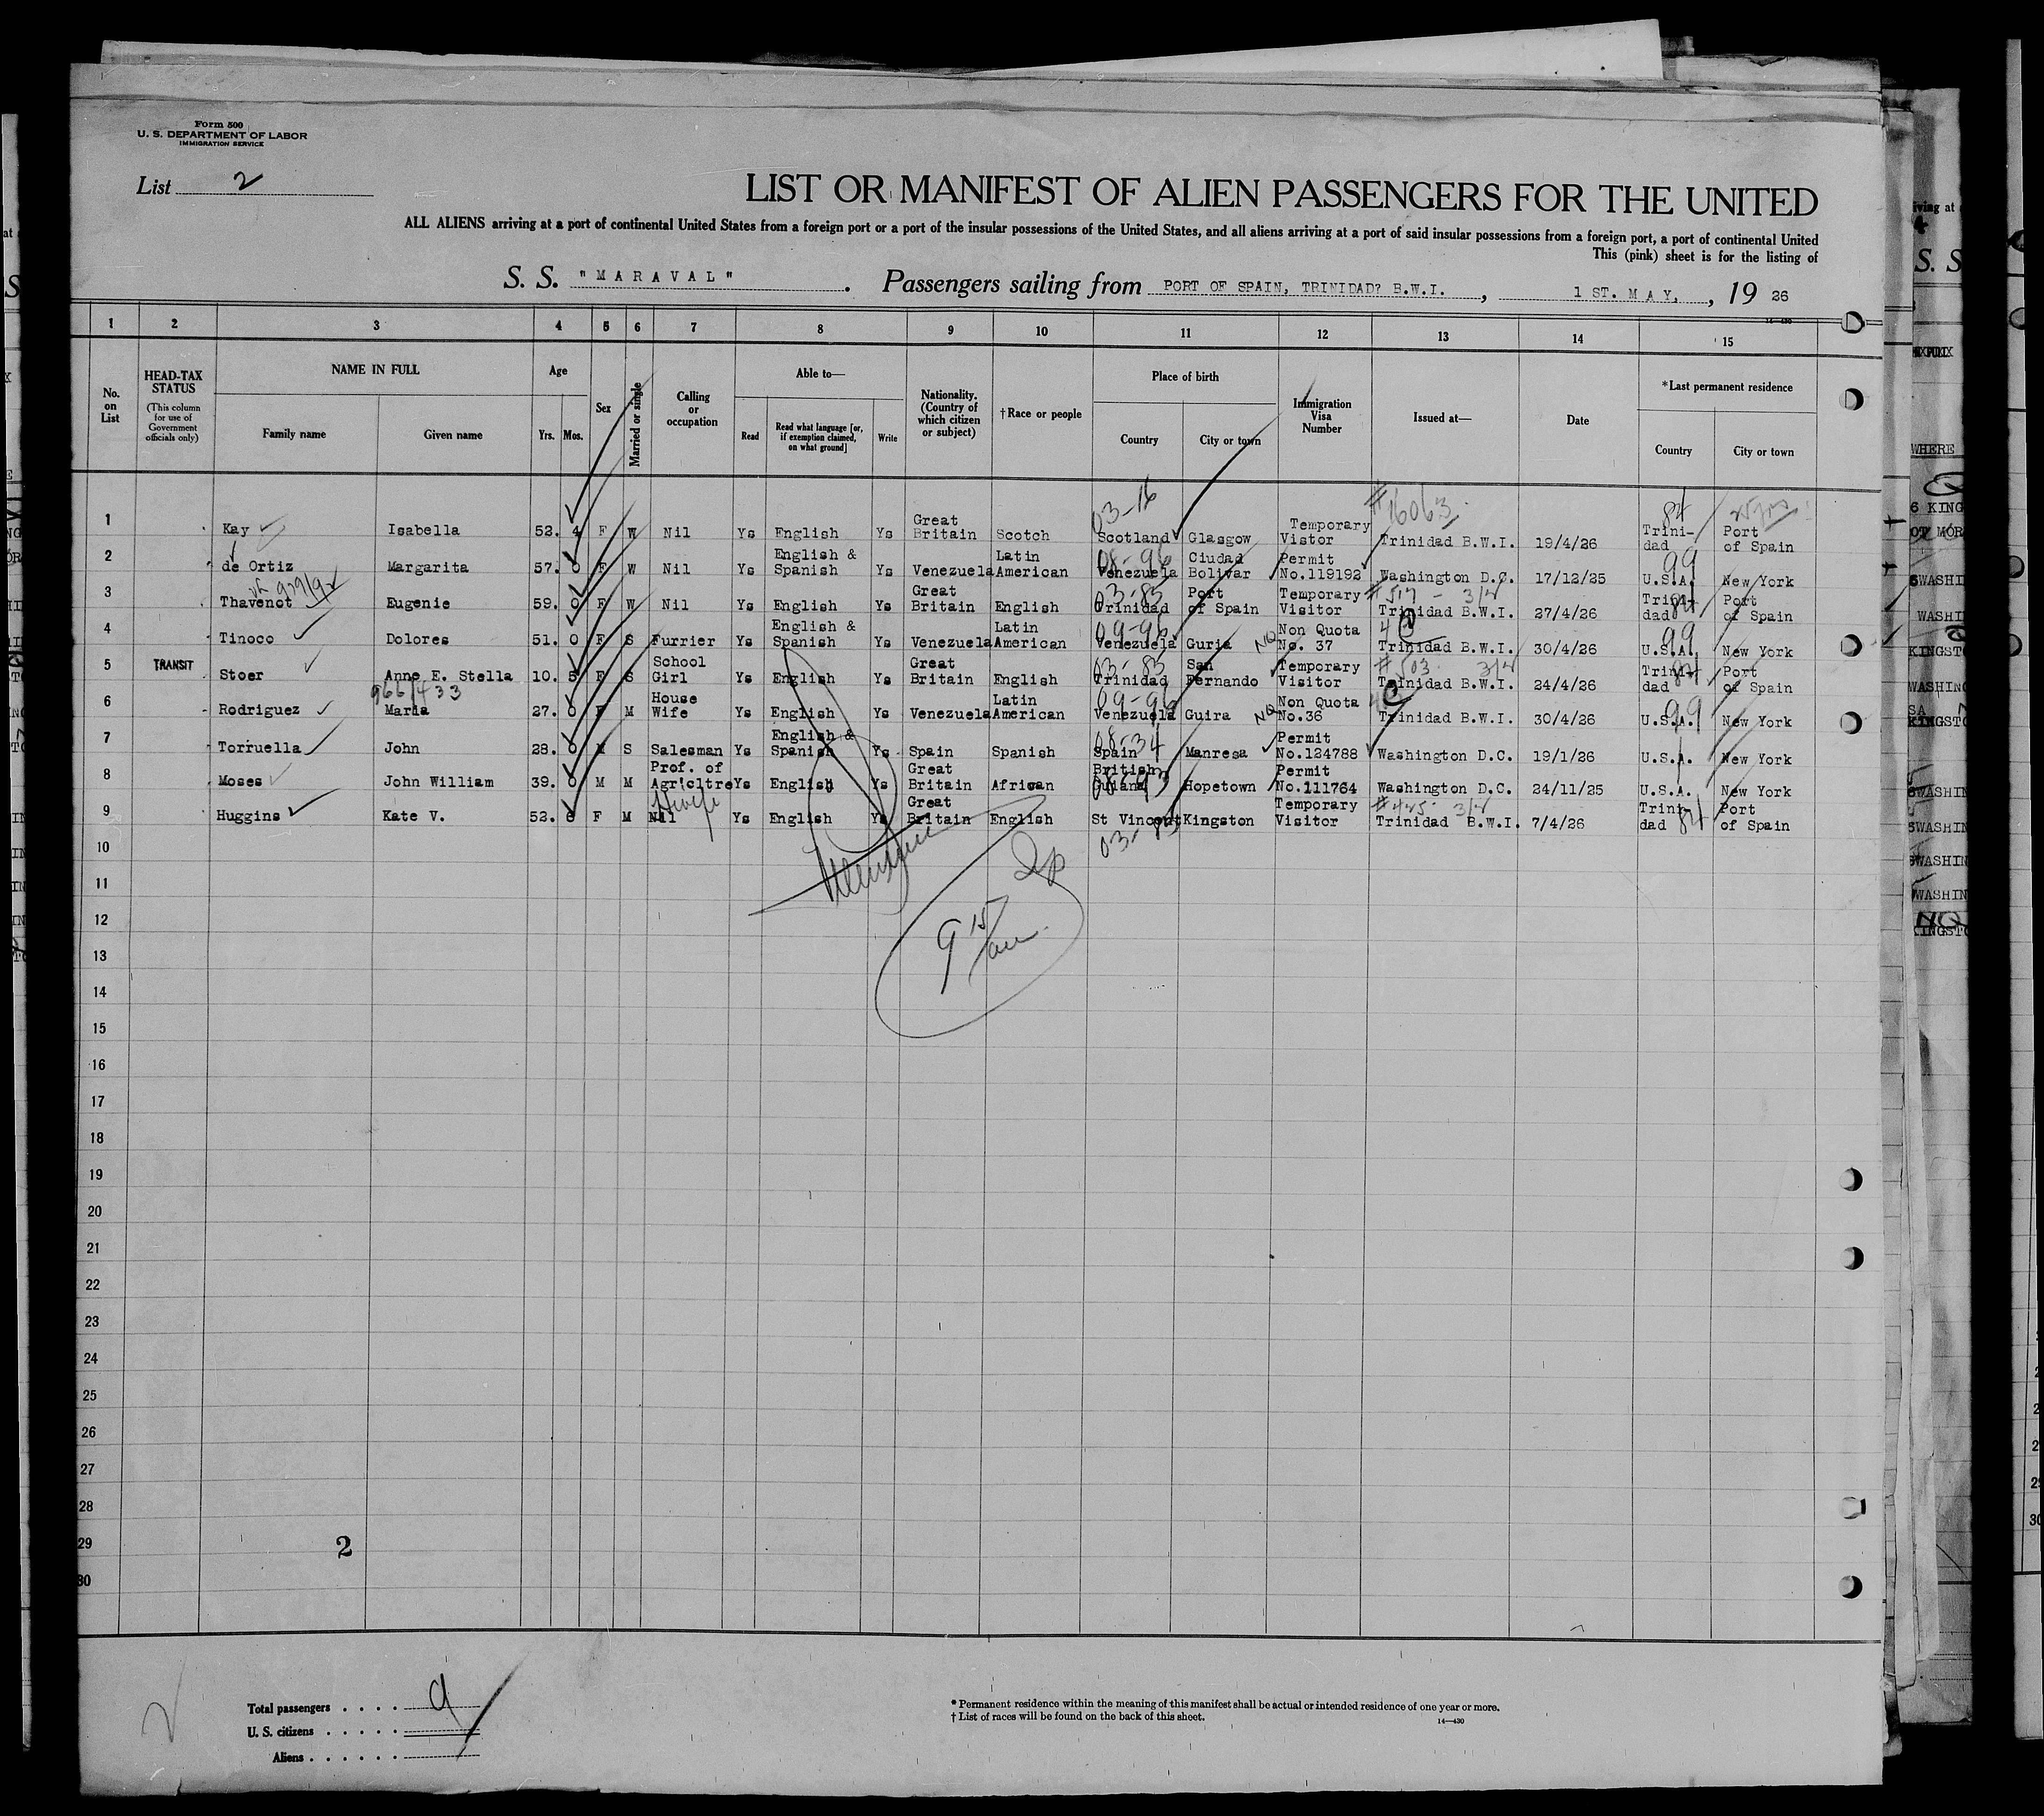 Form 500
U. S. DEPARTMENT OF LABOR
IMMIGRATION SERVICE
List 2
LIST OR MANIFEST OF ALIEN PASSENGERS FOR THE UNITED
ALL ALIENS arriving at a port of continental United States from a foreign port or a port of the insular possessions of the United States, and all aliens arriving at a port of said insular possessions from a foreign port, a port of continental United
This (pink) sheet is for the listing of
S. S. "MARAVAL". Passengers sailing from PORT OF SPAIN, TRINIDAD? B.W.I., 1 ST. MAY, , 19 26
14-430
1 2 3 4 5 6 7 8 9 10 11 12 13 14 15
No. on List
HEAD-TAX STATUS
(This column for use of Government officials only)
NAME IN FULL
Family name Given name
Age
Yrs. Mos.
Sex
Married or single
Calling or occupation
Able to—
Read Read what language [or, if exemption claimed, on what ground] Write
Nationality. (Country of which citizen or subject)
†Race or people
Place of birth
Country City or town
Immigration Visa Number
Issued at—
Date
*Last permanent residence
Country City or town
1 Kay Isabella 52. 4 F W Nil Ys English Ys Great Britain Scotch 03-16 Scotland Glasgow Temporary Vistor #16063 Trinidad B.W.I. 19/4/26 84 Trini-dad Port of Spain
2 de Ortiz Margarita 57. 0 F W Nil Ys English & Spanish Ys Venezuela Latin American 08-96 Venezuela Ciudad Bolivar Permit No.119192 Washington D.C. 17/12/25 99 U.S.A. New York
3 Thavenot Eugenie 59. 0 F W Nil Ys English Ys Great Britain English 03-85 Trinidad Port of Spain Temporary Visitor #517 - 3/2 Trinidad B.W.I. 27/4/26 Trini-dad 84 Port of Spain
4 Tinoco Dolores 51. 0 F S Furrier Ys English & Spanish Ys Venezuela Latin American 09-96 Venezuela Guria NQ Non Quota No. 37 4 C Trinidad B.W.I. 30/4/26 99 U.S.A. New York
5 TRANSIT Stoer Anne E. Stella 10. 5 F S School Girl Ys English Ys Great Britain English 03-85 Trinidad San Fernando Temporary Visitor #503 3/2 Trinidad B.W.I. 24/4/26 Trini-dad 84 Port of Spain
966/433
6 Rodriguez Maria 27. 0 F M House Wife Ys English Ys Venezuela Latin American 09-96 Venezuela Guira NQ Non Quota No.36 4 C Trinidad B.W.I. 30/4/26 U.S.A. 99 New York
7 Torruella John 28. 0 M S Salesman Ys English & Spanish Ys Spain Spanish 08-34 Spain Manresa Permit No.124788 Washington D.C. 19/1/26 U.S.A. New York
8 Moses John William 39. 0 M M Prof. of Agr'cltre Ys English Ys Great Britain African British Guiana 08-93 Hopetown Permit No.111764 Washington D.C. 24/11/25 U.S.A. New York
9 Huggins Kate V. 52. 6 F M Nil Hwife Ys English Ys Great Britain English St Vincent 03-85 Kingston Temporary Visitor #425 3/2 Trinidad B.W.I. 7/4/26 Trini-dad 84 Port of Spain
10
11
12
13
14
15
16
17
18
19
20
21
22
23
24
25
26
27
28
29
30
9 15
2
Total passengers . . . . 9
U. S. citizens . . . . .
Aliens . . . . . .
* Permanent residence within the meaning of this manifest shall be actual or intended residence of one year or more.
† List of races will be found on the back of this sheet.
14—430